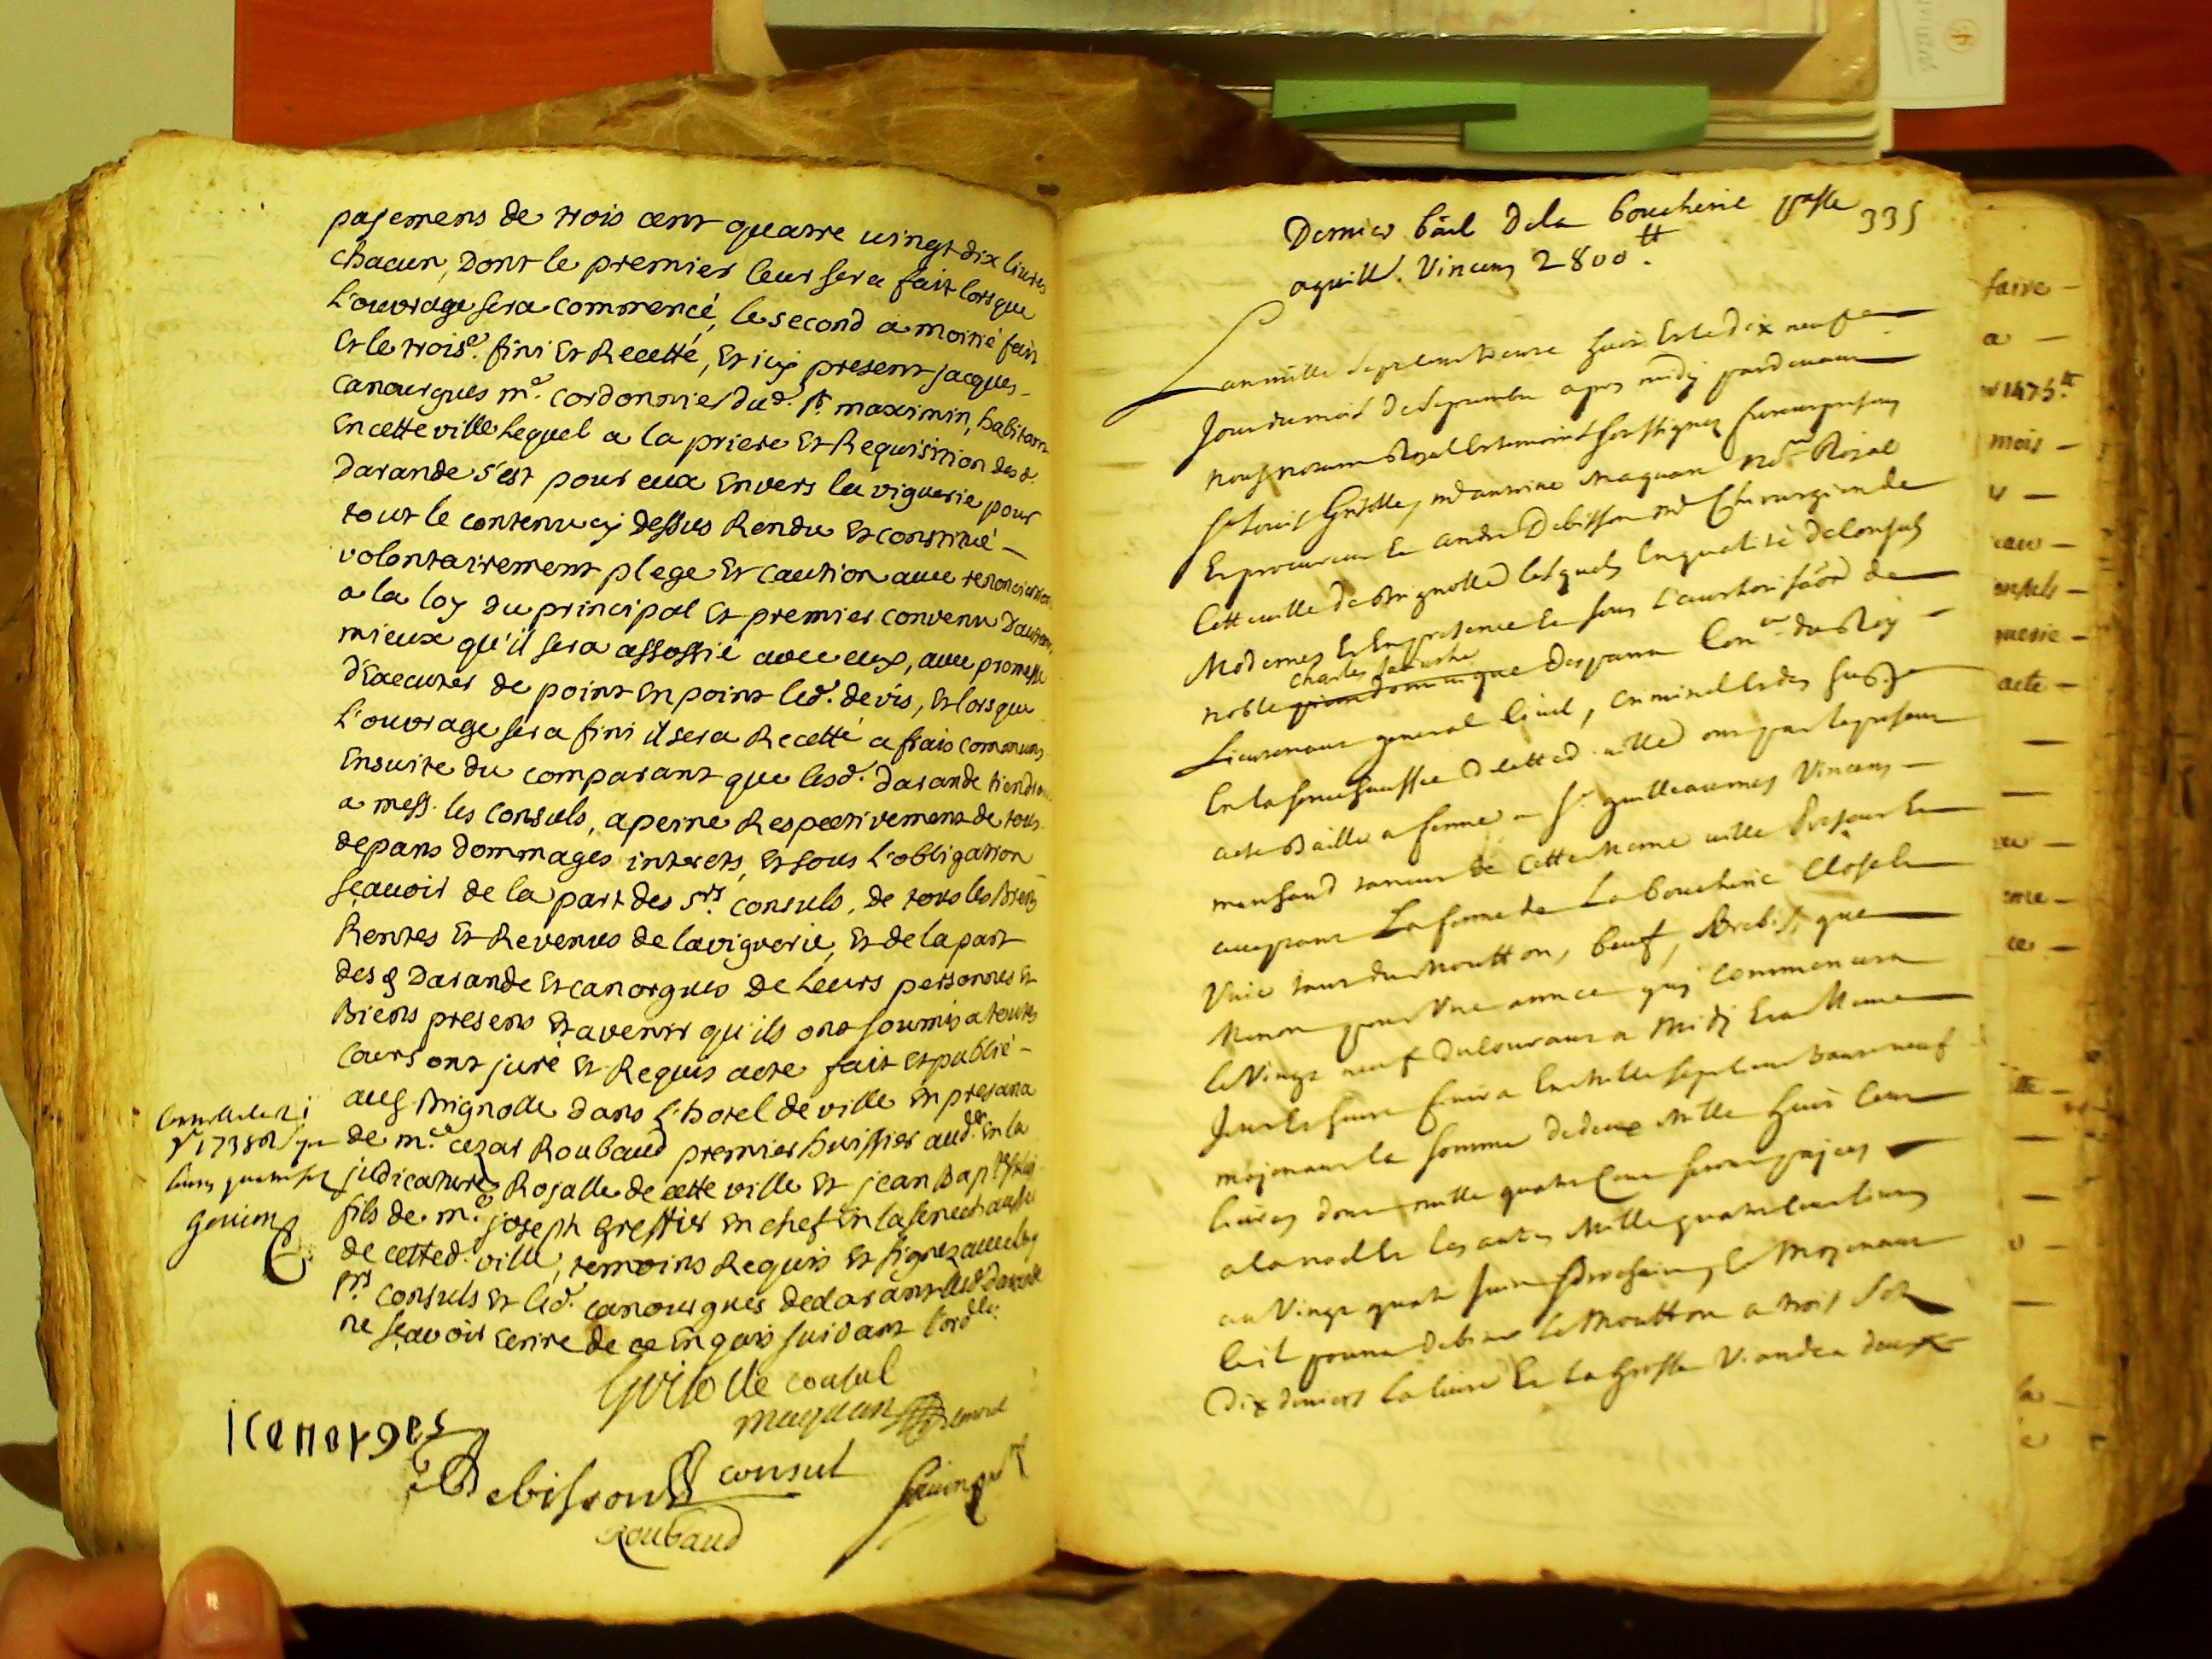 payemens de trois cent quatre vingt dix livres
chacun, Dont le premier leur sera fait lorsque
L'ouvrage sera commencé, le second a moitié fait
Et le trois.e fini Et Recetté, Et icy present jacques
canourgues m.e cordonnier dud. St. maximin, habitant
En cette ville Lequel a la priere Et Requisition desd.
Darande s'est pour eux Envers la viguerie pour
tout le contenu cy dessus Rendu Et constitué
volontairement plege Et caution avec renonciation
a la loy du principal Et premier convenu D'autant
mieux qu'il sera assossié avec eux, avec promesse
d'Executer de point En point led. devis, Et lorsque
L'ouvrage sera fini il sera Recetté a frais communs
Ensuite du comparant que lesd. Darande tiendront
a mess. les consuls, a peine Respectivement de tous
depans dommages interets, Et sous L'obligation
sçavoir de la part des srs. consuls, de tous les Biens
Rentes Et Revenus de la viguerie, Et de la part
des d. Darande Et canorgues de Leurs personnes Et
Biens presens Et avenir qu'ils ont soumis a toutes
Cours ont juré Et Requis acte fait Et publié
aud. Brignolle dans L'hotel de ville En presance
de m.e cezar Roubaud premier huissier aud. En la
judicature Rojalle de cette ville Et jean Bap.te
fils de m.e joseph Greffier En chef En la senechaussée
de cetted. ville, temoins Requis Et signez avec les
srs. consuls Et led. canourgues declarant lesd. Darande
ne sçavoir Ecrire de ce Enquis suivant l'ord.ce
1738
Grisolle consul
maquan
Icanorges
Debisson consul
Roubaud
335
Dernier bail De la boucherie passé
a guill. Vincens 2800 tt.
L'an mille sept cens trente huit Et le dix neuf.e
Jour du mois De septembre apres midy pardevant
nous notaire Royal Et temoins soussignez furent presens
Sr. Louis Grisolle, me antoine Maquan Royal
Et procureur Et andré Debisson me Chirurgien de
Cette ville de Brignolle lesquels En qualité de Consuls
Modernes Et En presence Et sous L'authorisãon de
charles
noble Despana Con.er du Roy
Lieutenant general Civil, Criminel
En la senechaussée De cetted. ville ont par le present
acte Baillé a ferme a Sr. guilleaumes Vincens
marchand taneur de Cette meme ville present Et
acceptant La ferme de La boucherie Close Et
Unie tant du Moutton, beuf, Brebis, que
Menon pour Une année qui Commencera
le Vingt neuf Du Courant a Midy Et a Meme
Jour Et heure finira En Mille sept cens trente neuf
moyenant la somme de deux Mille huit Cent
livres dont mille quatre Cent seront payées
a la noelle Et les autres Mille quatre Cent livres
au Vingt quatre juin prochain, Et Moyenant
Ce il pourra Debiter Le Moutton a trois sols
Dix deniers La livre Et La Grosse Viande a deux
faire
a
1475 tt
mois
acte